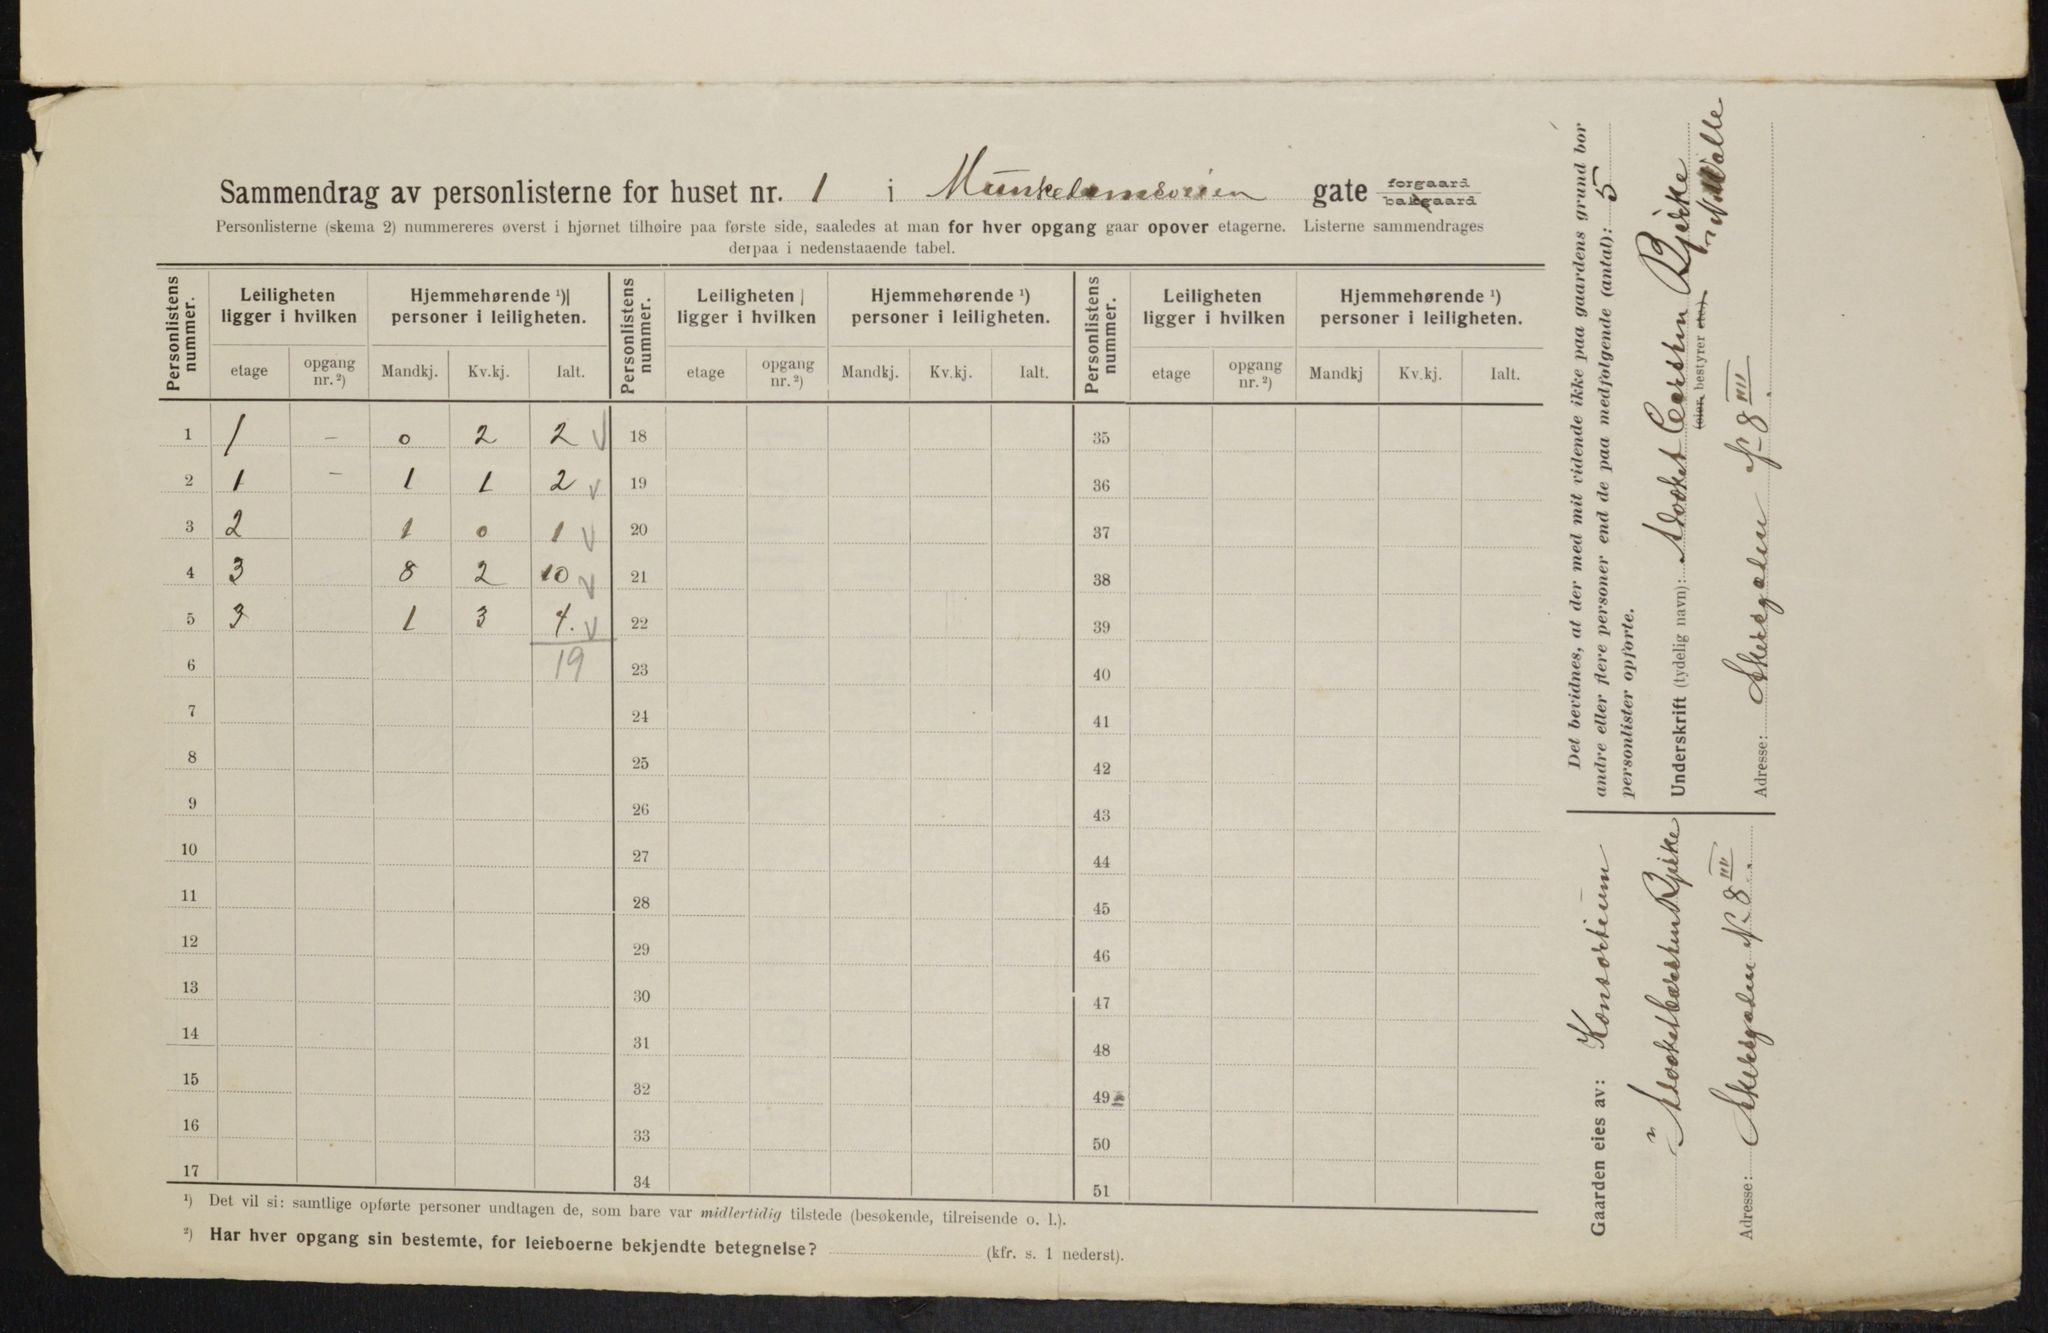 Sammendrag av personlisterne for huset nr. 1 i Munkedamsveien gate forgaard bakgaard
Personlisterne (skema 2) nummereres øverst i hjørnet tilhøire paa første side, saaledes at man for hver opgang gaar opover etagerne. Listerne sammendrages
derpaa i nedenstaaende tabel.
Personlistens nummer. Leiligheten ligger i hvilken Hjemmehørende ¹) personer i leiligheten. Personlistens nummer. Leiligheten ligger i hvilken Hjemmehørende ¹) personer i leiligheten. Personlistens nummer. Leiligheten ligger i hvilken Hjemmehørende ¹) personer i leiligheten.
etage opgang nr. ²) Mandkj. Kv.kj. Ialt. etage opgang nr. ²) Mandkj. Kv.kj. Ialt. etage opgang nr. ²) Mandkj Kv.kj. Ialt.
1 1 – 0 2 2 √ 18 35
2 1 – 1 1 2 √ 19 36
3 2 1 0 1 √ 20 37
4 3 8 2 10 √ 21 38
5 3 1 3 4. √ 22 39
6 19 23 40
7 24 41
8 25 42
9 26 43
10 27 44
11 28 45
12 29 46
13 30 47
14 31 48
15 32 49
16 33 50
17 34 51
¹) Det vil si: samtlige opførte personer undtagen de, som bare var midlertidig tilstede (besøkende, tilreisende o. l.).
²) Har hver opgang sin bestemte, for leieboerne bekjendte betegnelse? (kfr. s. 1 nederst).
Det bevidnes, at der med mit vidende ikke paa gaardens grund bor
andre eller flere personer end de paa medfølgende (antal): 5
personlister opførte.
Underskrift (tydelig navn): Advokat Carsten Bjerke
(eier, bestyrer etc.)
Adresse: Akersgaten N 8 III
Gaarden eies av: Konsortium
Adresse: Akersgaten N 8 III